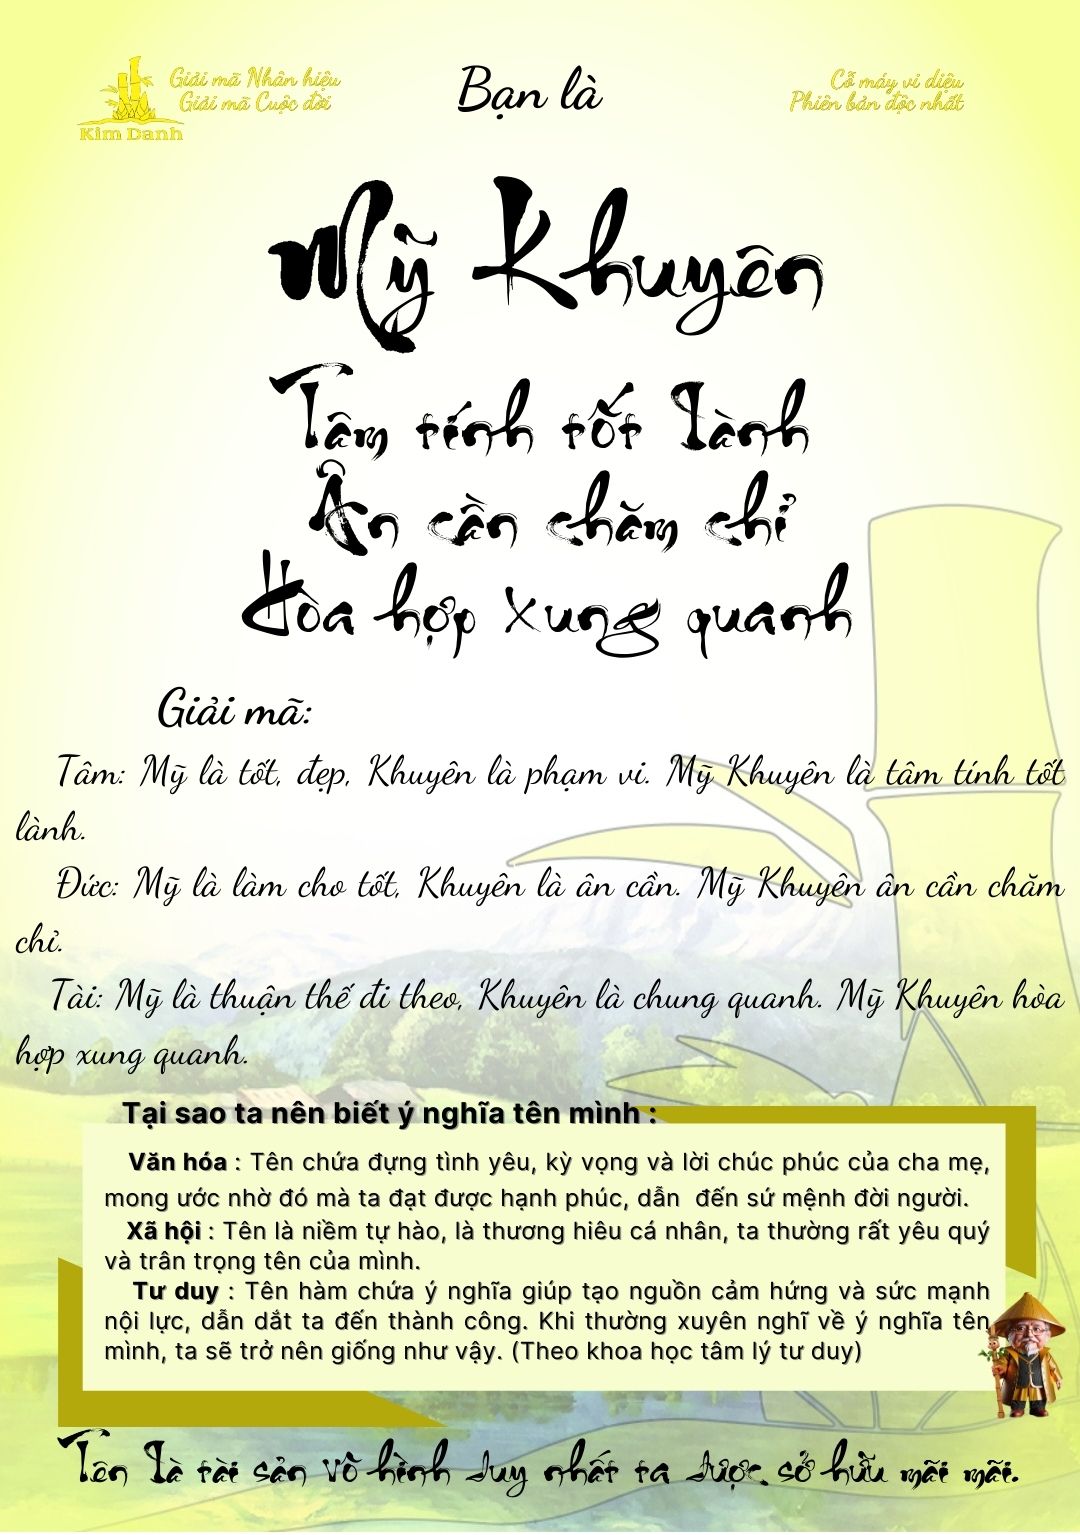 Giải mã Nhân hiệu
Giải mã Cuộc đời
Kim Danh
Bạn là
Cỗ máy vi diệu
Phiên bản độc nhất
Mỹ Khuyên
Tâm tính tốt lành
Ân cần chăm chỉ
Hòa hợp xung quanh
Giải mã:
Tâm: Mỹ là tốt, đẹp, Khuyên là phạm vi. Mỹ Khuyên là tâm tính tốt
lành.
Đức: Mỹ là làm cho tốt, Khuyên là ân cần. Mỹ Khuyên ân cần chăm
chỉ.
Tài: Mỹ là thuận thế đi theo, Khuyên là chung quanh. Mỹ Khuyên hòa
hợp xung quanh.
Tại sao ta nên biết ý nghĩa tên mình :
Văn hóa : Tên chứa đựng tình yêu, kỳ vọng và lời chúc phúc của cha mẹ,
mong ước nhờ đó mà ta đạt được hạnh phúc, dẫn đến sứ mệnh đời người.
Xã hội : Tên là niềm tự hào, là thương hiêu cá nhân, ta thường rất yêu quý
và trân trọng tên của mình.
Tư duy : Tên hàm chứa ý nghĩa giúp tạo nguồn cảm hứng và sức mạnh
nội lực, dẫn dắt ta đến thành công. Khi thường xuyên nghĩ về ý nghĩa tên
mình, ta sẽ trở nên giống như vậy. (Theo khoa học tâm lý tư duy)
Tên là tài sản vô hình duy nhất ta được sở hữu mãi mãi.